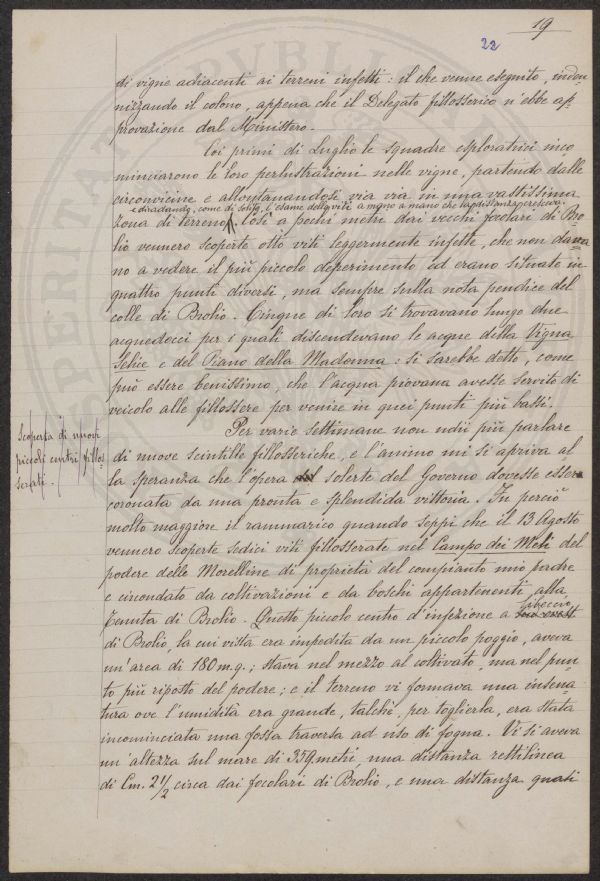 19
22
di vigne adiacenti ai terreni infetti: il che venne eseguito, inden-
nizzando il colono, appena che il Delegato fillosserico n'ebbe ap-
provazione dal Ministero.
Coi primi di Luglio le squadre esploratrici inco
minciarono le loro perlustrazioni nelle vigne, partendo dalle
circonvicine e allontanandosi via via in una vastissima
e diradando, come di solito, l'esame delle viti a mano a mano che la distanza cresceva.
zona di terreno. Così a pochi metri dai vecchi focolari di Bro-
lio vennero scoperte otto viti leggermente infette, che non dava
no a vedere il più piccolo deperimento ed erano situate in
quattro punti diversi, ma sempre sulla nota pendice del
colle di Brolio. Cinque di loro si trovavano lungo due
acquedocci per i quali discendevano le acque della Vigna
Felice e del Piano della Madonna: si sarebbe detto, come
può essere benissimo, che l'acqua piovana avesse servito di
veicolo alle fillossere per venire in quei punti più bassi.
Per varie settimane non udii più parlare
Scoperta di nuovi
piccoli centri fillos-
serati.
di nuove scintille fillosseriche, e l'animo mi si apriva al
la speranza che l'opera solerte del Governo dovesse essere
coronata da una pronta e splendida vittoria. Fu perciò
molto maggiore il rammarico quando seppi che il 13 Agosto
vennero scoperte sedici viti fillosserate nel Campo dei Meli del
podere delle Morelline di proprietà del compianto mio padre
e circondato da coltivazioni e da boschi appartenenti alla
Tenuta di Brolio. Questo piccolo centro d'infezione a libeccio
di Brolio, la cui vista era impedita da un piccolo poggio, aveva
un'area di 180 m.q.; stava nel mezzo al coltivato, ma nel pun-
to più riposto del podere; e il terreno vi formava una insena-
tura ove l'umidità era grande, talchè, per toglierla, era stata
incominciata una fossa traversa ad uso di fogna. Vi si aveva
un'altezza sul mare di 359 metri, una distanza rettilinea
di Cm. 2 1/2 circa dai focolari di Brolio, e una distanza quasi